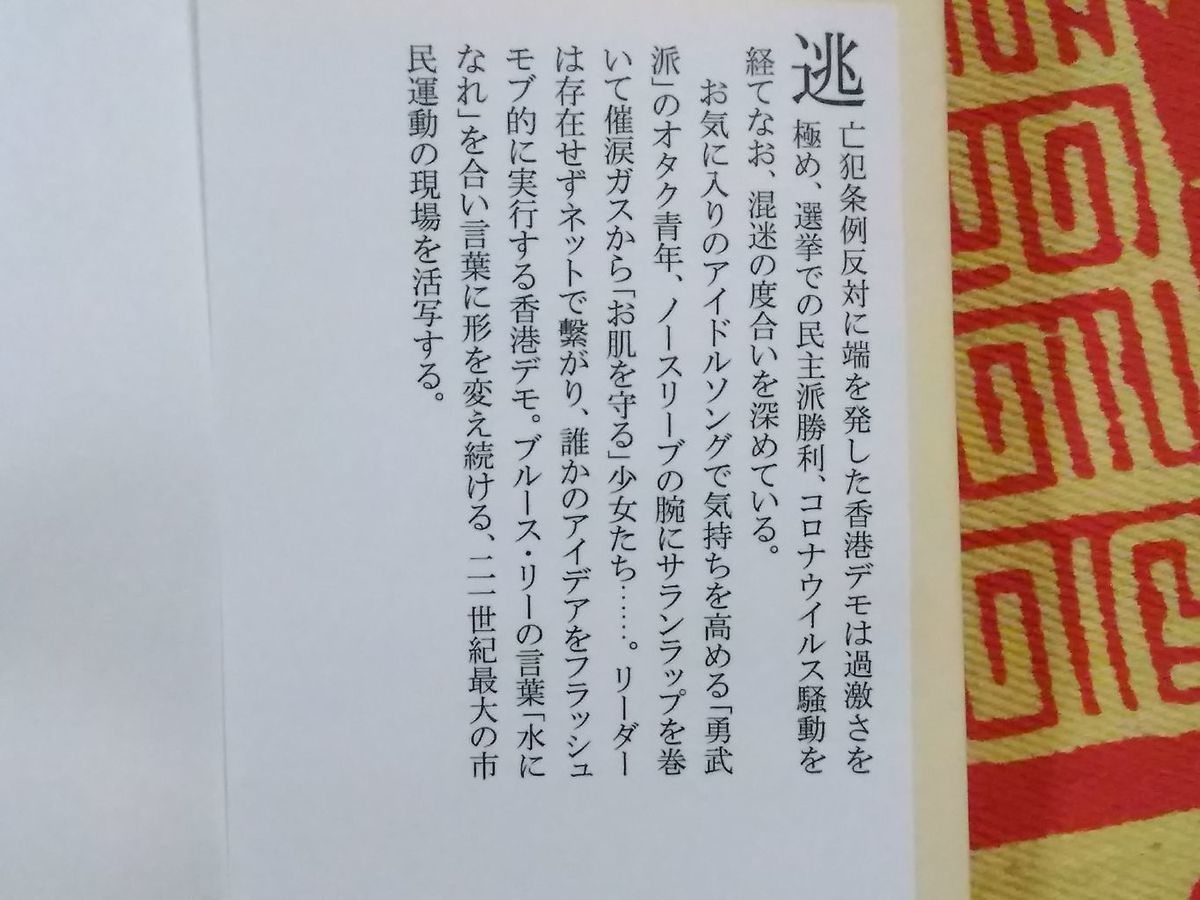 逃亡犯条例反対に端を発した香港デモは過激さを
極め、選挙での民主派勝利、コロナウイルス騒動を
経てなお、混迷の度合いを深めている。
お気に入りのアイドルソングで気持ちを高める「勇武
派」のオタク青年、ノースリーブの腕にサランラップを巻
いて催涙ガスから「お肌を守る」少女たち……。リーダー
は存在せずネットで繫がり、誰かのアイデアをフラッシュ
モブ的に実行する香港デモ。ブルース・リーの言葉「水に
なれ」を合い言葉に形を変え続ける、二一世紀最大の市
民運動の現場を活写する。